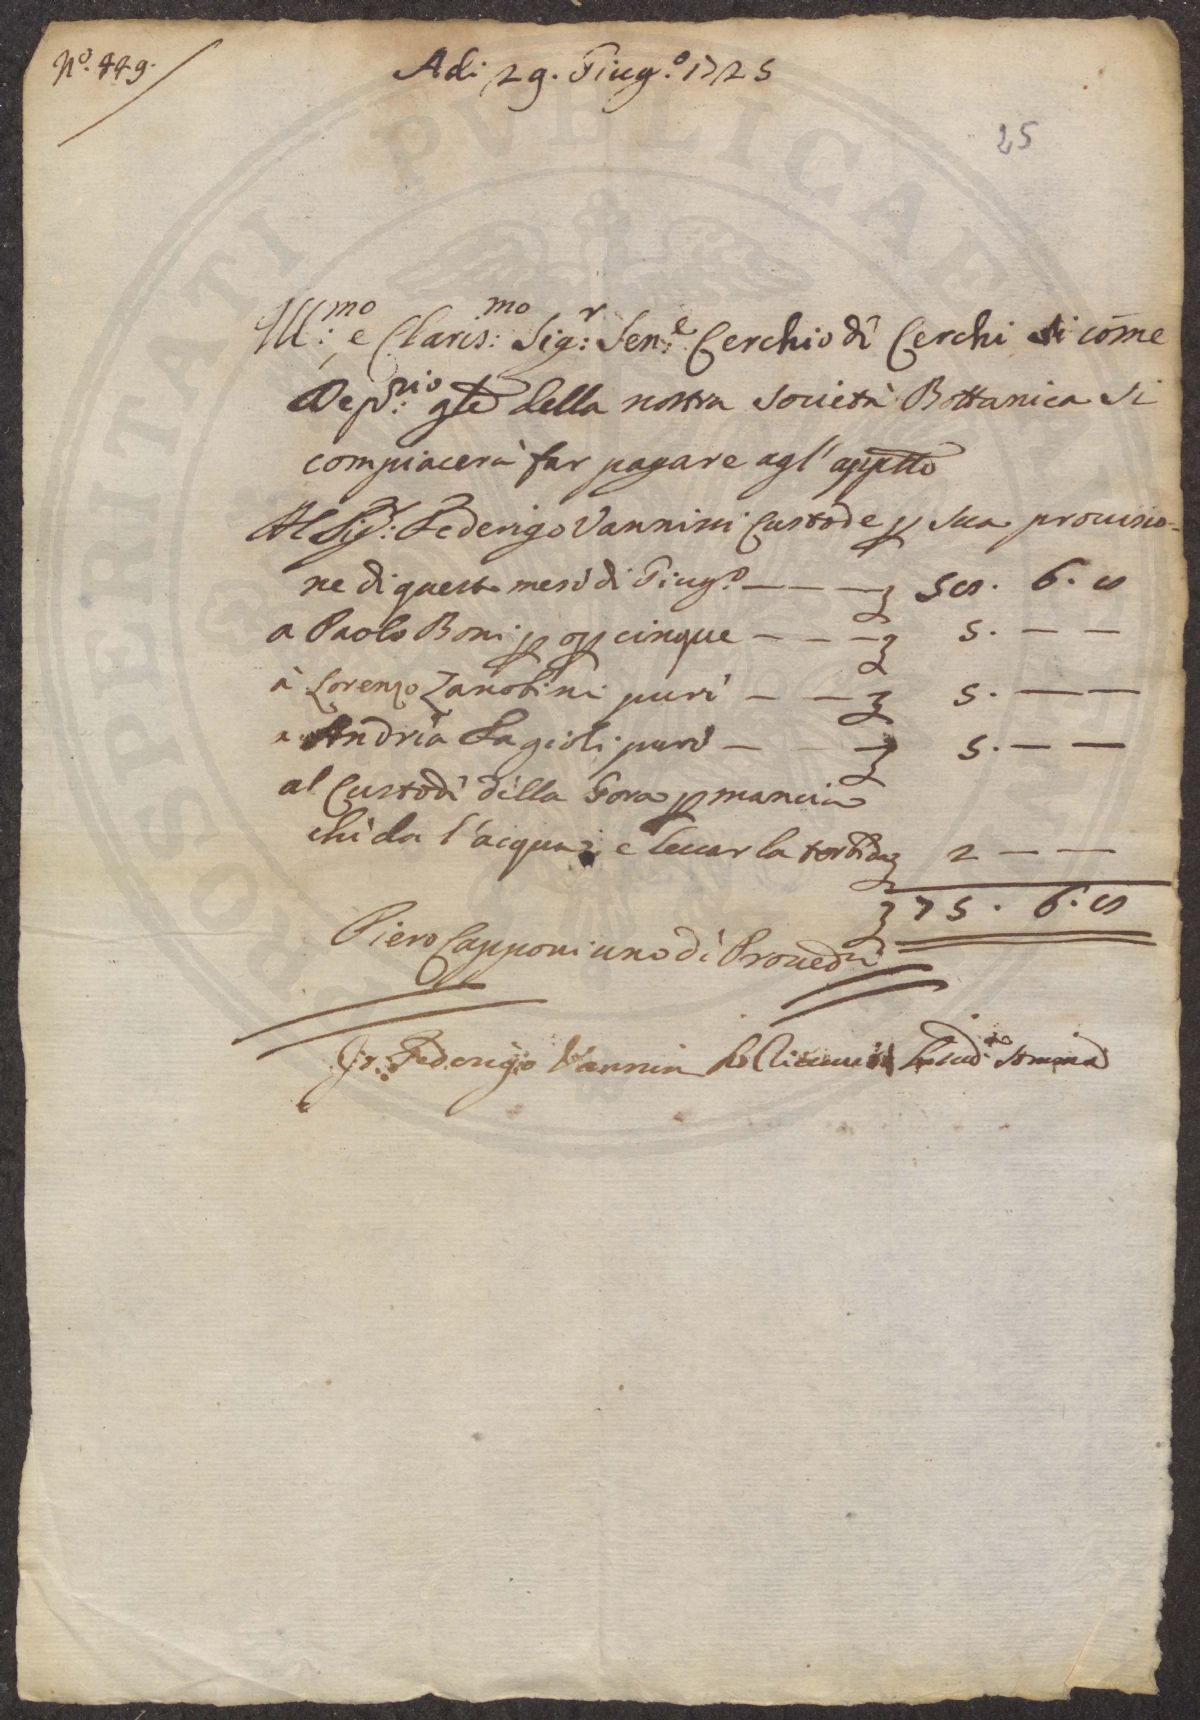 N.º 449.
Adi 29. Giug.º 1725
25
Ill:mo e Claris:mo Sig:r Sen:e Cerchio di Cerchi si come
Dep:rio gle della nostra Società Bottanica si
compiacerà far pagare agl' appitto
Al Sig:r Federigo Vannini Custode p sua provisio-
ne di questo mese di Giug.º — — — 58. 6. 8
a Paolo Boni p op cinque — — — 5. — —
à Lorenzo Zanobini pure — — — 5. — —
a Andrea Fagioli pure — — — 5. — —
al Custode della Gora p mancia
che da l'acqua, e levar la torbida 2 — —
75. 6. 8
Piero Capponi uno di Proved:ri
Io Federigo Vannini ho somma